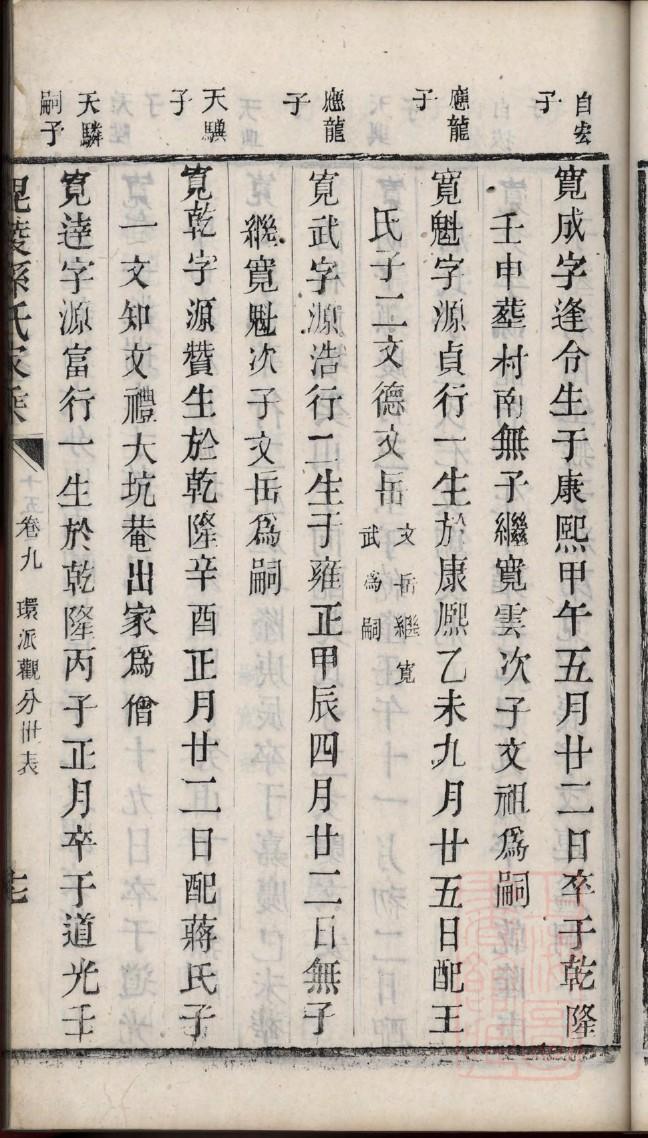 自宏
子
寬成字逢令生于康熙甲午五月廿二日卒于乾隆
壬申塟村南無子繼寬雲次子文祖爲嗣
應龍
子
寬魁字源貞行一生於康熈乙未九月廿五日配王
氏子二文德文岳
文岳繼寬
武爲嗣
應龍
子
寬武字源浩行二生于雍正甲辰四月廿二日無子
繼寬魁次子文岳爲嗣
天驥
子
寬乾字源贊生於乾隆辛酉正月廿二日配蔣氏子
一文知文禮大坑菴出家爲僧
天驎
嗣子
寬逹字源富行一生於乾隆丙子正月卒于道光壬
毘陵孫氏家乘
卷九
環派觀分卅表